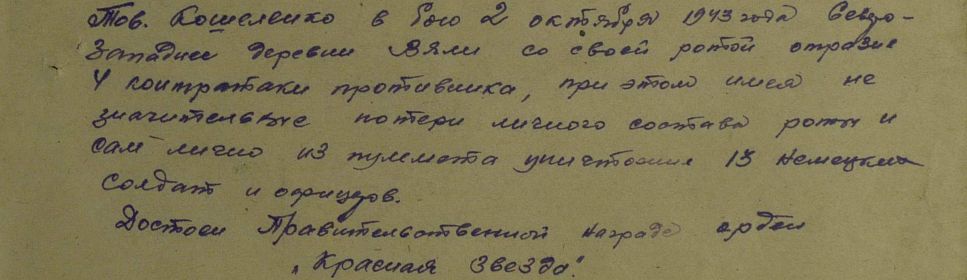 Тов. Кошеленко в бою 2 октября 1943 года Северо-
Западнее деревни Вяли со своей ротой отразил
4 контратаки противника, при этом имея не
значительные потери личного состава роты и
сам лично из пулемета уничтожил 13 немецких
солдат и офицеров.
Достоен Правительственной награде орден
„Красная Звезда".